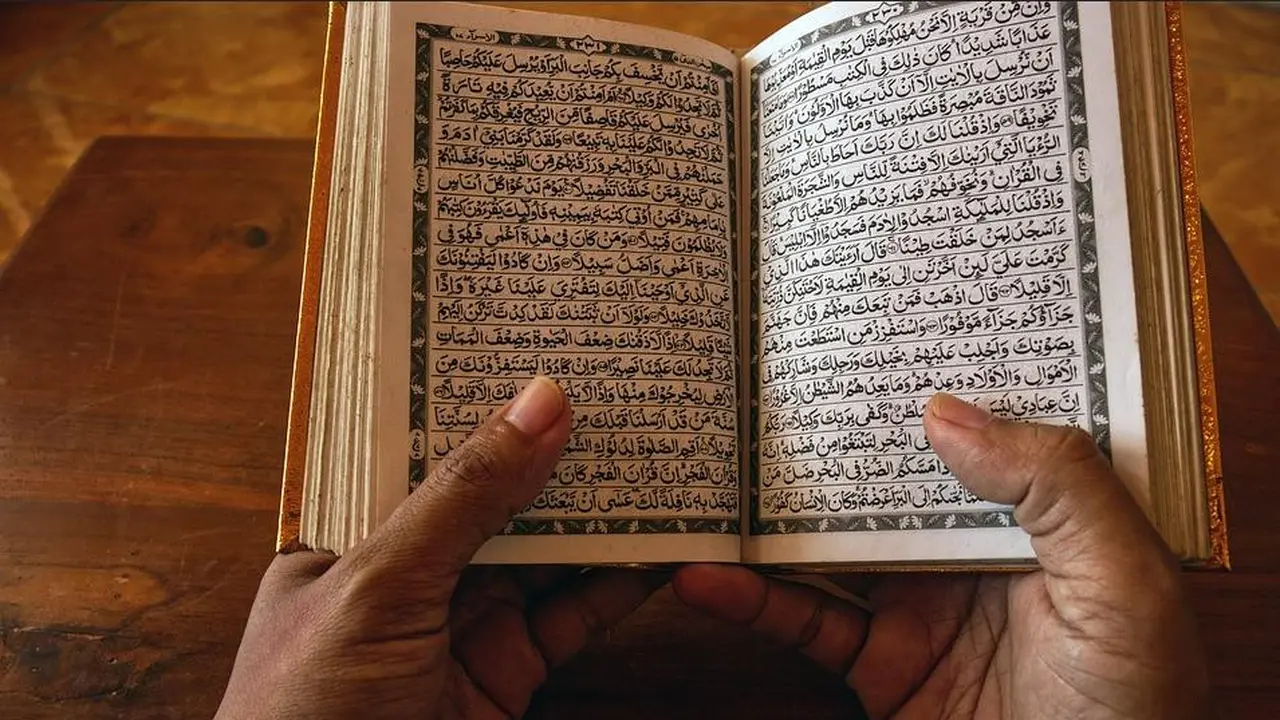 الاسراء ١٧
وَاِنْ مِّنْ قَرْيَةٍ اِلَّا نَحْنُ مُهْلِكُوْهَا قَبْلَ يَوْمِ الْقِيٰمَةِ اَوْ مُعَذِّبُوْهَا
عَذَابًا شَدِيْدًا كَانَ ذٰلِكَ فِى الْكِتٰبِ مَسْطُوْرًا
اَنْ نُّرْسِلَ بِالْاٰيٰتِ اِلَّا اَنْ كَذَّبَ بِهَا الْاَوَّلُوْنَ وَاٰتَيْنَا
ثَمُوْدَ النَّاقَةَ مُبْصِرَةً فَظَلَمُوْا بِهَا وَمَا نُرْسِلُ بِالْاٰيٰتِ اِلَّا
تَخْوِيْفًا وَاِذْ قُلْنَا لَكَ اِنَّ رَبَّكَ اَحَاطَ بِالنَّاسِ وَمَا جَعَلْنَا
الرُّءْيَا الَّتِيْ اَرَيْنٰكَ اِلَّا فِتْنَةً لِّلنَّاسِ وَالشَّجَرَةَ الْمَلْعُوْنَةَ
فِى الْقُرْاٰنِ وَنُخَوِّفُهُمْ فَمَا يَزِيْدُهُمْ اِلَّا طُغْيَانًا كَبِيْرًا
وَاِذْ قُلْنَا لِلْمَلٰٓئِكَةِ اسْجُدُوْا لِاٰدَمَ فَسَجَدُوْا اِلَّا اِبْلِيْسَ قَالَ
ءَاَسْجُدُ لِمَنْ خَلَقْتَ طِيْنًا قَالَ اَرَءَيْتَكَ هٰذَا الَّذِيْ
كَرَّمْتَ عَلَيَّ لَئِنْ اَخَّرْتَنِ اِلٰى يَوْمِ الْقِيٰمَةِ لَاَحْتَنِكَنَّ ذُرِّيَّتَهٗ
اِلَّا قَلِيْلًا قَالَ اذْهَبْ فَمَنْ تَبِعَكَ مِنْهُمْ فَاِنَّ جَهَنَّمَ
جَزَآؤُكُمْ جَزَآءً مَّوْفُوْرًا وَاسْتَفْزِزْ مَنِ اسْتَطَعْتَ مِنْهُمْ
بِصَوْتِكَ وَاَجْلِبْ عَلَيْهِمْ بِخَيْلِكَ وَرَجِلِكَ وَشَارِكْهُمْ فِى
الْاَمْوَالِ وَالْاَوْلَادِ وَعِدْهُمْ وَمَا يَعِدُهُمُ الشَّيْطٰنُ اِلَّا غُرُوْرًا
اِنَّ عِبَادِيْ لَيْسَ سُلْطٰنٌ وَكَفٰى بِرَبِّكَ وَكِيْلًا
فِى الْبَحْرِ لِتَبْتَغُوْا مِنْ فَضْلِهٖ اِنَّهٗ
مَسَّكُمُ الضُّرُّ فِى الْبَحْرِ ضَلَّ مَنْ
اِلَى الْبَرِّ اَعْرَضْتُمْ وَكَانَ الْاِنْسَانُ كَفُوْرًا
الاسراء ١٧
اَفَاَمِنْتُمْ اَنْ يَّخْسِفَ بِكُمْ جَانِبَ الْبَرِّ اَوْ يُرْسِلَ عَلَيْكُمْ حَاصِبًا
ثُمَّ لَا تَجِدُوْا لَكُمْ وَكِيْلًا اَمْ اَمِنْتُمْ اَنْ يُّعِيْدَكُمْ فِيْهِ تَارَةً
اُخْرٰى فَيُرْسِلَ عَلَيْكُمْ قَاصِفًا مِّنَ الرِّيْحِ فَيُغْرِقَكُمْ بِمَا كَفَرْتُمْ
ثُمَّ لَا تَجِدُوْا لَكُمْ عَلَيْنَا بِهٖ تَبِيْعًا وَلَقَدْ كَرَّمْنَا بَنِيْٓ اٰدَمَ وَ
حَمَلْنٰهُمْ فِى الْبَرِّ وَالْبَحْرِ وَرَزَقْنٰهُمْ مِّنَ الطَّيِّبٰتِ وَفَضَّلْنٰهُمْ
عَلٰى كَثِيْرٍ مِّمَّنْ خَلَقْنَا تَفْضِيْلًا يَوْمَ نَدْعُوْا كُلَّ اُنَاسٍ
بِاِمَامِهِمْ فَمَنْ اُوْتِيَ كِتٰبَهٗ بِيَمِيْنِهٖ فَاُولٰٓئِكَ يَقْرَءُوْنَ كِتٰبَهُمْ
وَلَا يُظْلَمُوْنَ فَتِيْلًا وَمَنْ كَانَ فِيْ هٰذِهٖٓ اَعْمٰى فَهُوَ فِى
الْاٰخِرَةِ اَعْمٰى وَاَضَلُّ سَبِيْلًا وَاِنْ كَادُوْا لَيَفْتِنُوْنَكَ
عَنِ الَّذِيْٓ اَوْحَيْنَآ اِلَيْكَ لِتَفْتَرِيَ عَلَيْنَا غَيْرَهٗ وَاِذًا
لَّاتَّخَذُوْكَ خَلِيْلًا وَلَوْلَآ اَنْ ثَبَّتْنٰكَ لَقَدْ كِدْتَّ تَرْكَنُ اِلَيْهِمْ
شَيْئًا قَلِيْلًا اِذًا لَّاَذَقْنٰكَ ضِعْفَ الْحَيٰوةِ وَضِعْفَ الْمَمَاتِ
ثُمَّ لَا تَجِدُ لَكَ عَلَيْنَا نَصِيْرًا وَاِنْ كَادُوْا لَيَسْتَفِزُّوْنَكَ مِنَ
الْاَرْضِ لِيُخْرِجُوْكَ مِنْهَا وَاِذًا لَّا اِلَّا قَلِيْلًا
سُنَّةَ مَنْ قَدْ اَرْسَلْنَا قَبْلَكَ مِنْ لِسُنَّتِنَا
تَحْوِيْلًا اَقِمِ الصَّلٰوةَ لِدُلُوْكِ الشَّمْسِ
وَقُرْاٰنَ الْفَجْرِ اِنَّ قُرْاٰنَ الْفَجْرِ كَانَ
فَتَهَجَّدْ بِهٖ نَافِلَةً لَّكَ عَسٰٓى اَنْ يَّبْعَثَكَ